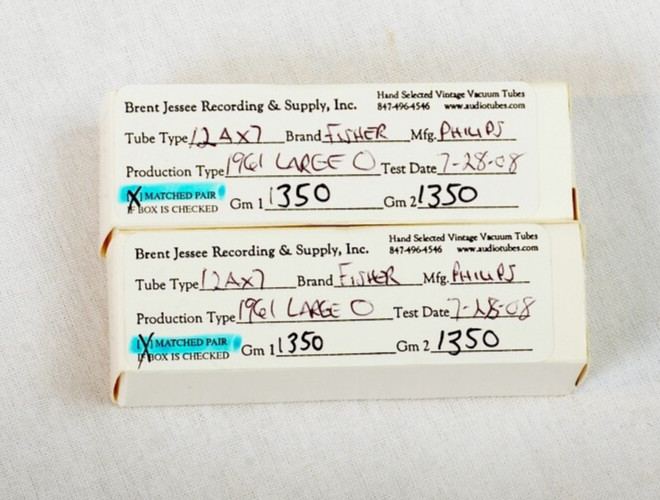 Brent Jessee Recording & Supply, Inc. Hand Selected Vintage Vacuum Tubes
847-496-4546 www.audiotubes.com
Tube Type 12AX7 Brand FISHER Mfg. PHILIPS
Production Type 1961 LARGE O Test Date 7-28-08
[X] MATCHED PAIR
IF BOX IS CHECKED Gm 1 1350 Gm 2 1350
Brent Jessee Recording & Supply, Inc. Hand Selected Vintage Vacuum Tubes
847-496-4546 www.audiotubes.com
Tube Type 12AX7 Brand FISHER Mfg. PHILIPS
Production Type 1961 LARGE O Test Date 7-28-08
[X] MATCHED PAIR
IF BOX IS CHECKED Gm 1 1350 Gm 2 1350